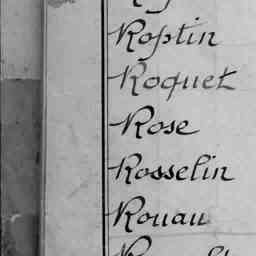 Roptin
Roquet
Rose
Rosselin
Rouau